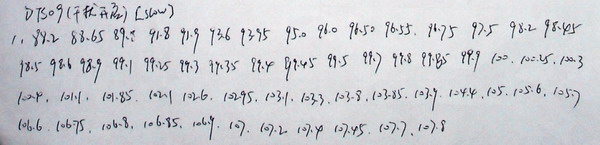 DTS09(干扰云层) [slow]
1. 88.2 88.65 89.2 91.8 91.9 93.6 93.95 95.0 96.0 96.50 96.55. 96.75 97.5 98.2 98.45
98.5 98.6 98.9 99.1 99.25 99.3 99.35 99.4 99.45 99.5 99.7 99.8 99.85 99.9 100. 100.25. 100.3
100.4. 101.1. 101.85. 102.1 102.6. 102.95. 103.1. 103.3. 103.8. 103.85. 103.9. 104.4. 105. 105.6. 105.7
106.6. 106.75. 106.8. 106.85. 106.9. 107. 107.2. 107.4 107.45. 107.7. 107.8